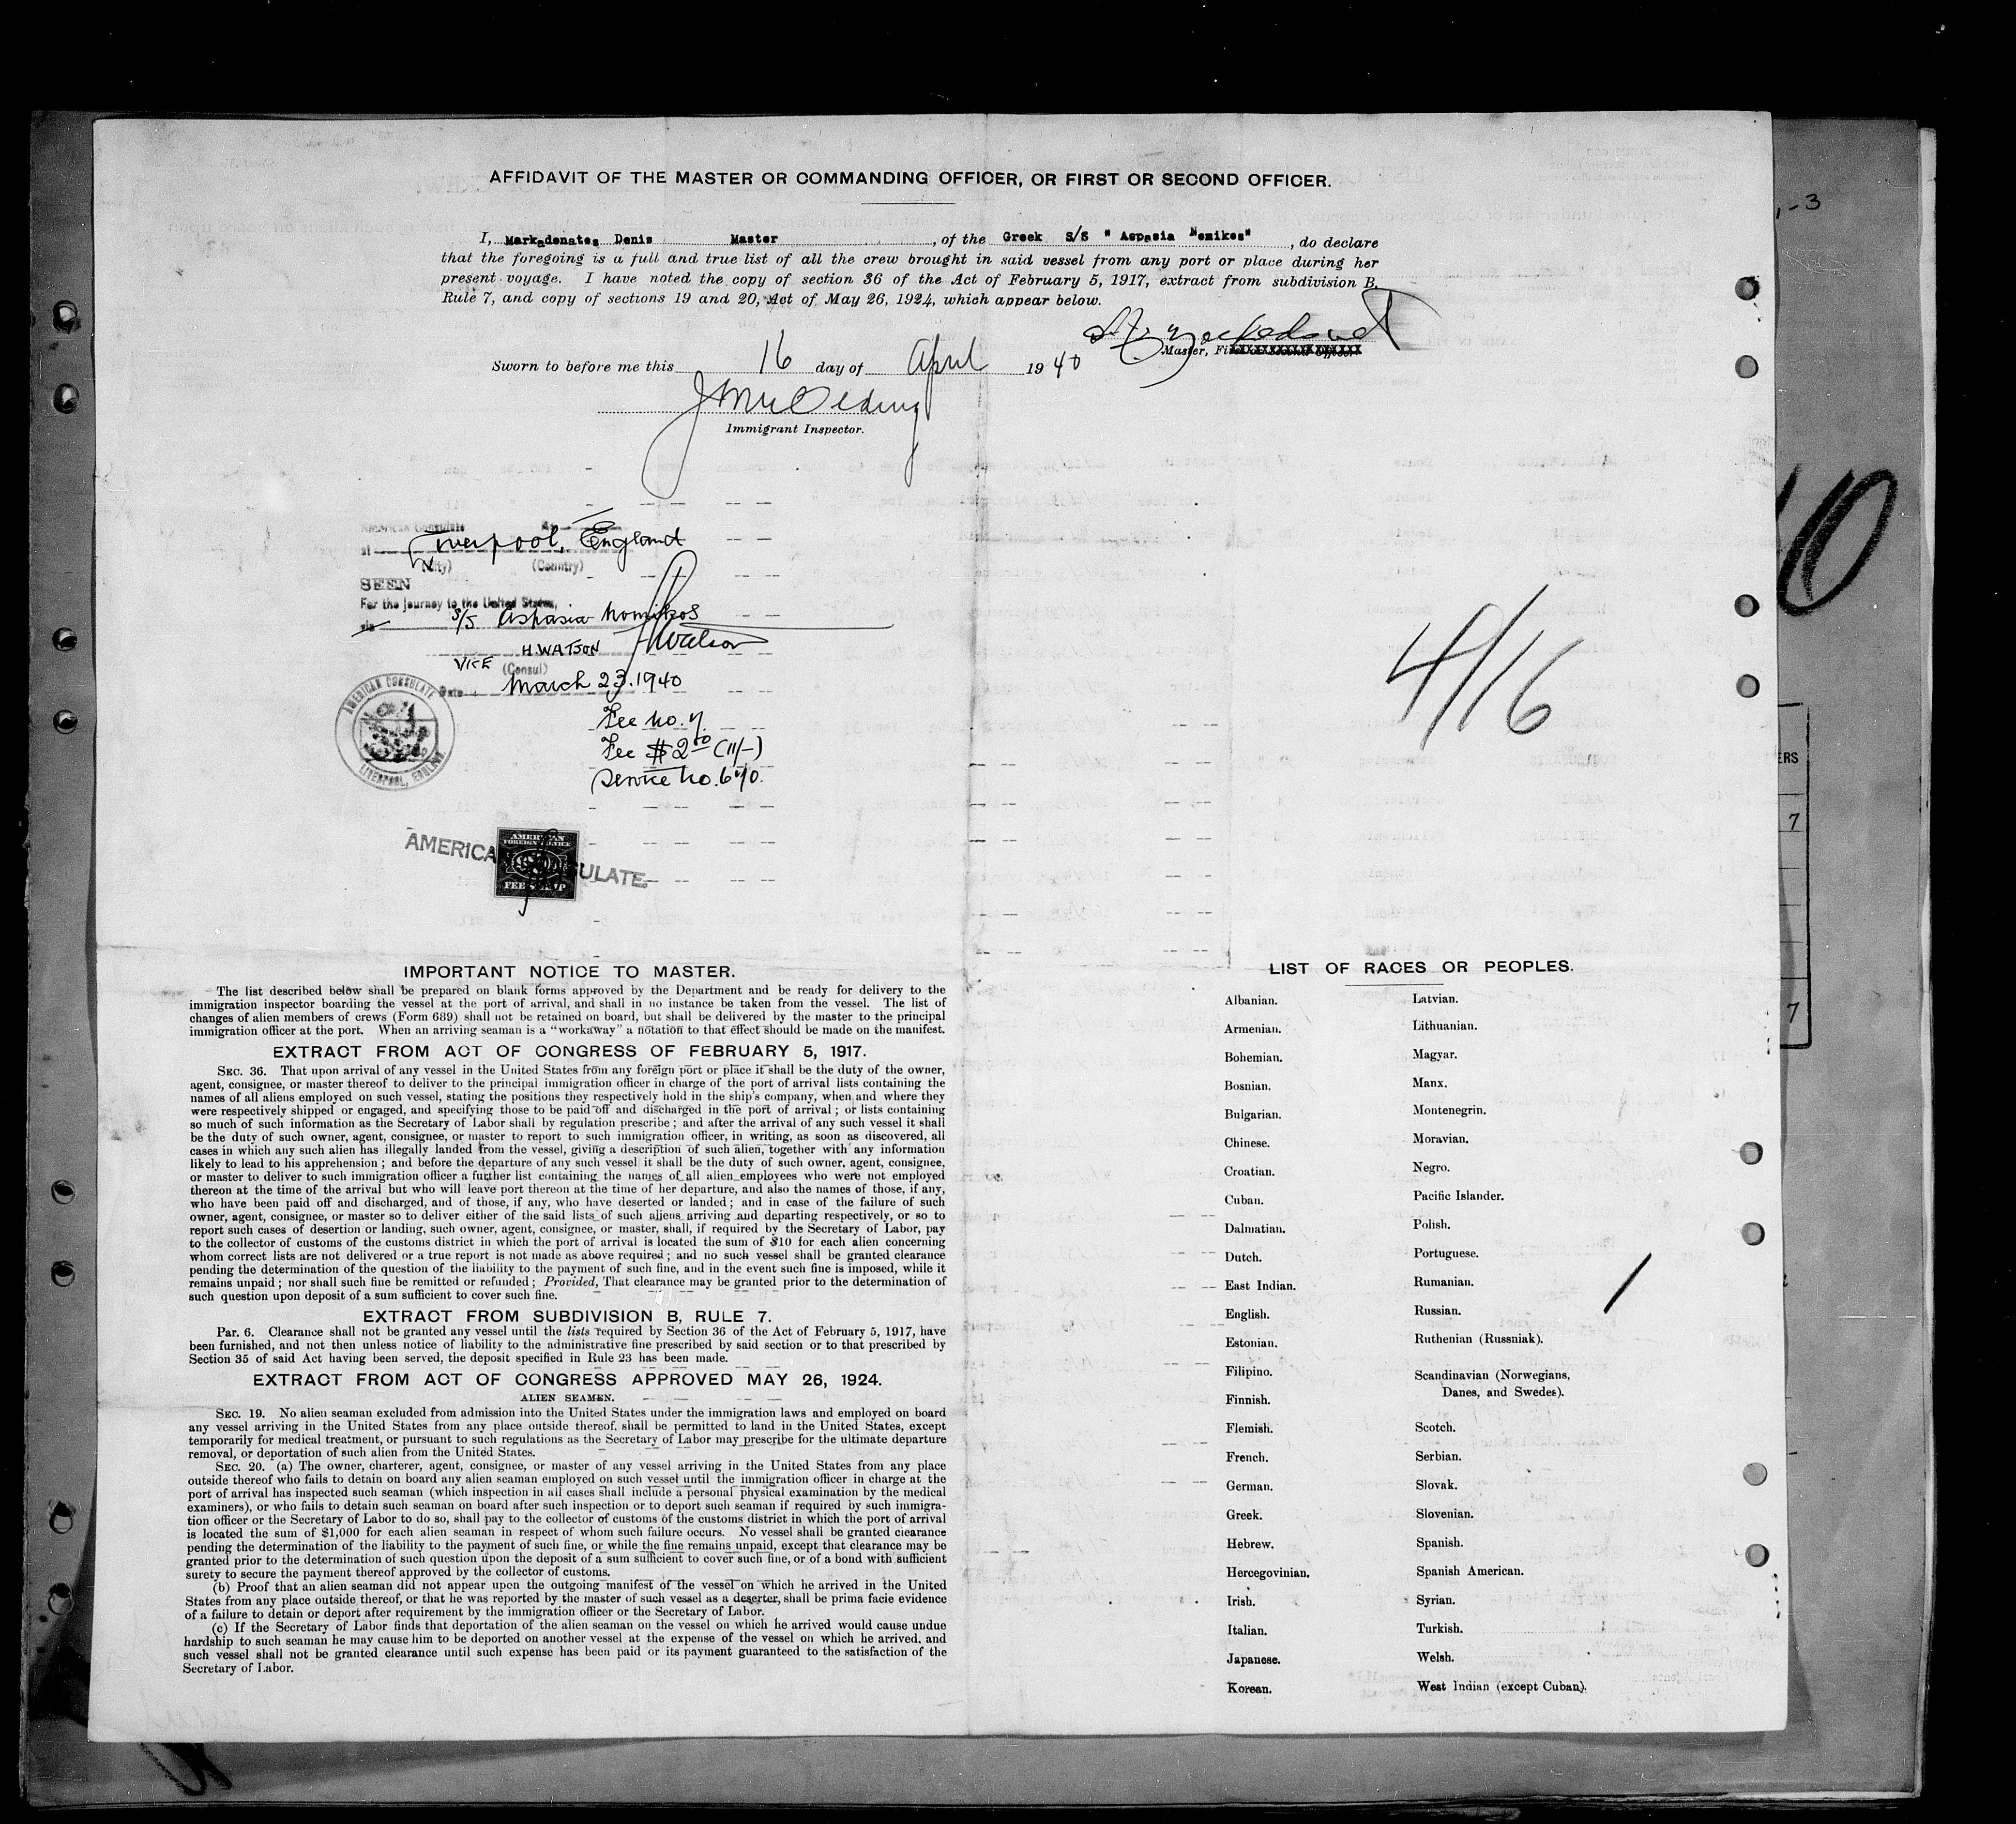 AFFIDAVIT OF THE MASTER OR COMMANDING OFFICER, OR FIRST OR SECOND OFFICER.
I, Markadonatos Denis Master, of the Greek S/S " Aspasia Nomikos", do declare
that the foregoing is a full and true list of all the crew brought in said vessel from any port or place during her
present voyage. I have noted the copy of section 36 of the Act of February 5, 1917, extract from subdivision B,
Rule 7, and copy of sections 19 and 20, Act of May 26, 1924, which appear below.
Master, First or Second Officer.
Sworn to before me this 16 day of April 1940
Immigrant Inspector.
American Consulate
at Liverpool, England
(City) (Country)
SEEN
For the journey to the United States,
via S/S Aspasia Nomikos
H. WATSON HWatson
VICE (Consul)
Date March 23. 1940
Fee No. 7.
Fee $2 00 (11/-)
Service No. 670.
AMERICAN CONSULATE
LIVERPOOL, ENGLAND
AMERICAN CONSULATE.
AMERICAN
FOREIGN SERVICE
FEE STAMP
4/16
10
-3
ERS
7
7
IMPORTANT NOTICE TO MASTER.
The list described below shall be prepared on blank forms approved by the Department and be ready for delivery to the
immigration inspector boarding the vessel at the port of arrival, and shall in no instance be taken from the vessel. The list of
changes of alien members of crews (Form 689) shall not be retained on board, but shall be delivered by the master to the principal
immigration officer at the port. When an arriving seaman is a "workaway" a notation to that effect should be made on the manifest.
EXTRACT FROM ACT OF CONGRESS OF FEBRUARY 5, 1917.
SEC. 36. That upon arrival of any vessel in the United States from any foreign port or place it shall be the duty of the owner,
agent, consignee, or master thereof to deliver to the principal immigration officer in charge of the port of arrival lists containing the
names of all aliens employed on such vessel, stating the positions they respectively hold in the ship's company, when and where they
were respectively shipped or engaged, and specifying those to be paid off and discharged in the port of arrival; or lists containing
so much of such information as the Secretary of Labor shall by regulation prescribe; and after the arrival of any such vessel it shall
be the duty of such owner, agent, consignee, or master to report to such immigration officer, in writing, as soon as discovered, all
cases in which any such alien has illegally landed from the vessel, giving a description of such alien, together with any information
likely to lead to his apprehension; and before the departure of any such vessel it shall be the duty of such owner, agent, consignee,
or master to deliver to such immigration officer a further list containing the names of all alien employees who were not employed
thereon at the time of the arrival but who will leave port thereon at the time of her departure, and also the names of those, if any,
who have been paid off and discharged, and of those, if any, who have deserted or landed; and in case of the failure of such
owner, agent, consignee, or master so to deliver either of the said lists of such aliens arriving and departing respectively, or so to
report such cases of desertion or landing, such owner, agent, consignee, or master, shall, if required by the Secretary of Labor, pay
to the collector of customs of the customs district in which the port of arrival is located the sum of $10 for each alien concerning
whom correct lists are not delivered or a true report is not made as above required; and no such vessel shall be granted clearance
pending the determination of the question of the liability to the payment of such fine, and in the event such fine is imposed, while it
remains unpaid; nor shall such fine be remitted or refunded; Provided, That clearance may be granted prior to the determination of
such question upon deposit of a sum sufficient to cover such fine.
EXTRACT FROM SUBDIVISION B, RULE 7.
Par. 6. Clearance shall not be granted any vessel until the lists required by Section 36 of the Act of February 5, 1917, have
been furnished, and not then unless notice of liability to the administrative fine prescribed by said section or to that prescribed by
Section 35 of said Act having been served, the deposit specified in Rule 23 has been made.
EXTRACT FROM ACT OF CONGRESS APPROVED MAY 26, 1924.
ALIEN SEAMEN.
SEC. 19. No alien seaman excluded from admission into the United States under the immigration laws and employed on board
any vessel arriving in the United States from any place outside thereof, shall be permitted to land in the United States, except
temporarily for medical treatment, or pursuant to such regulations as the Secretary of Labor may prescribe for the ultimate departure
removal, or deportation of such alien from the United States.
SEC. 20. (a) The owner, charterer, agent, consignee, or master of any vessel arriving in the United States from any place
outside thereof who fails to detain on board any alien seaman employed on such vessel until the immigration officer in charge at the
port of arrival has inspected such seaman (which inspection in all cases shall include a personal physical examination by the medical
examiners), or who fails to detain such seaman on board after such inspection or to deport such seaman if required by such immigra-
tion officer or the Secretary of Labor to do so, shall pay to the collector of customs of the customs district in which the port of arrival
is located the sum of $1,000 for each alien seaman in respect of whom such failure occurs. No vessel shall be granted clearance
pending the determination of the liability to the payment of such fine, or while the fine remains unpaid, except that clearance may be
granted prior to the determination of such question upon the deposit of a sum sufficient to cover such fine, or of a bond with sufficient
surety to secure the payment thereof approved by the collector of customs.
(b) Proof that an alien seaman did not appear upon the outgoing manifest of the vessel on which he arrived in the United
States from any place outside thereof, or that he was reported by the master of such vessel as a deserter, shall be prima facie evidence
of a failure to detain or deport after requirement by the immigration officer or the Secretary of Labor.
(c) If the Secretary of Labor finds that deportation of the alien seaman on the vessel on which he arrived would cause undue
hardship to such seaman he may cause him to be deported on another vessel at the expense of the vessel on which he arrived, and
such vessel shall not be granted clearance until such expense has been paid or its payment guaranteed to the satisfaction of the
Secretary of Labor.
LIST OF RACES OR PEOPLES.
Albanian.
Armenian.
Bohemian.
Bosnian.
Bulgarian.
Chinese.
Croatian.
Cuban.
Dalmatian.
Dutch.
East Indian.
English.
Estonian.
Filipino.
Finnish.
Flemish.
French.
German.
Greek.
Hebrew.
Hercegovinian.
Irish.
Italian.
Japanese.
Korean.
Latvian.
Lithuanian.
Magyar.
Manx.
Montenegrin.
Moravian.
Negro.
Pacific Islander.
Polish.
Portuguese.
Rumanian.
Russian.
Ruthenian (Russniak).
Scandinavian (Norwegians,
Danes, and Swedes).
Scotch.
Serbian.
Slovak.
Slovenian.
Spanish.
Spanish American.
Syrian.
Turkish.
Welsh.
West Indian (except Cuban).